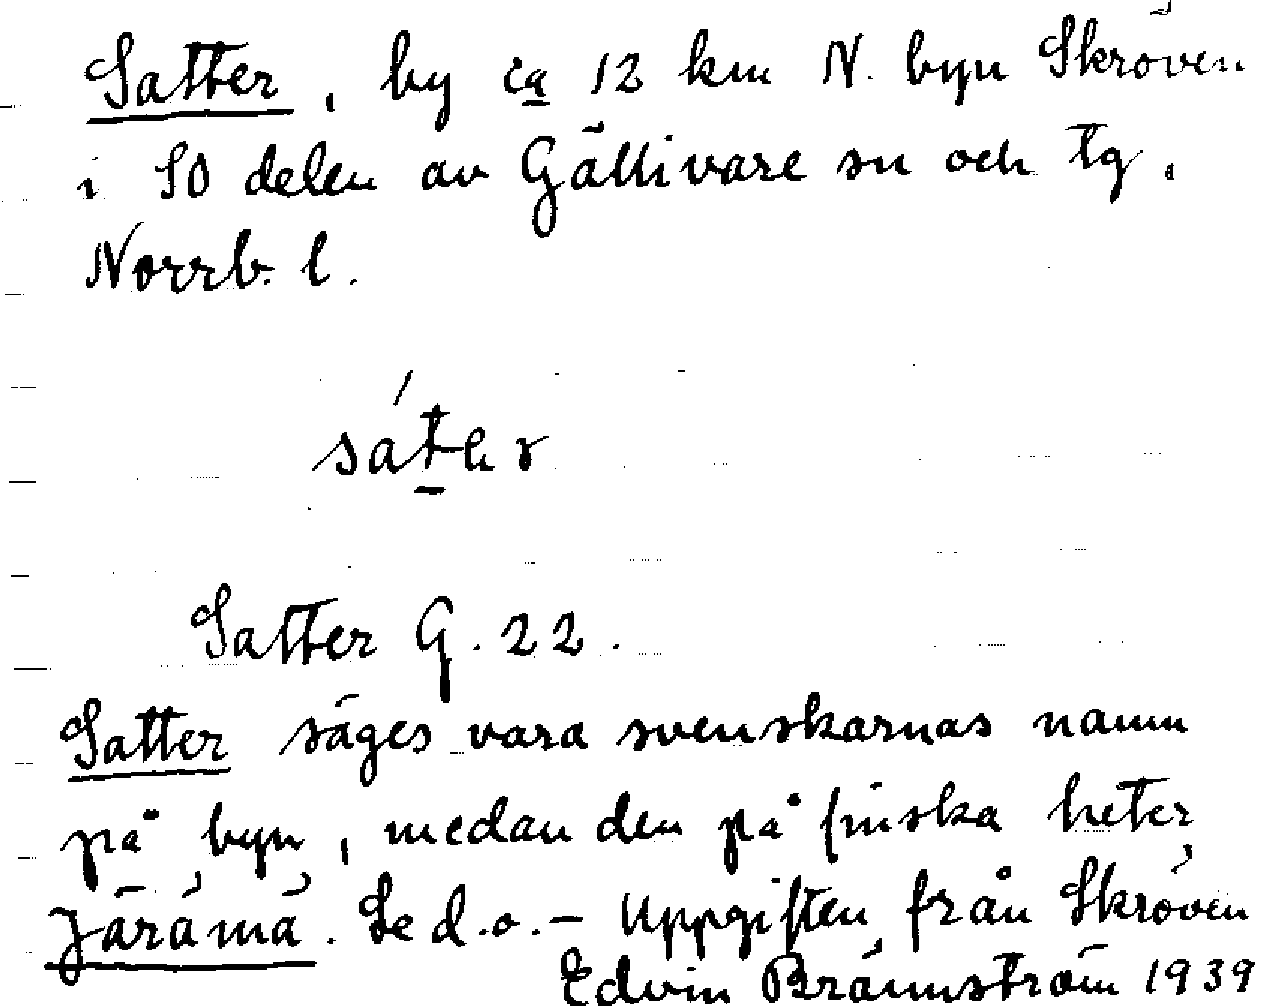 Satter, by ca 12 km N. byn Skröven
i SO delen av Gällivare sn och tg,
Norrb. l.
sát̠er
Satter G. 22.
Satter säges vara svenskarnas namn
på byn, medan den på finska heter
Järämä. Se d.o. – Uppgiften från Skröven
Edvin Brännström 1939